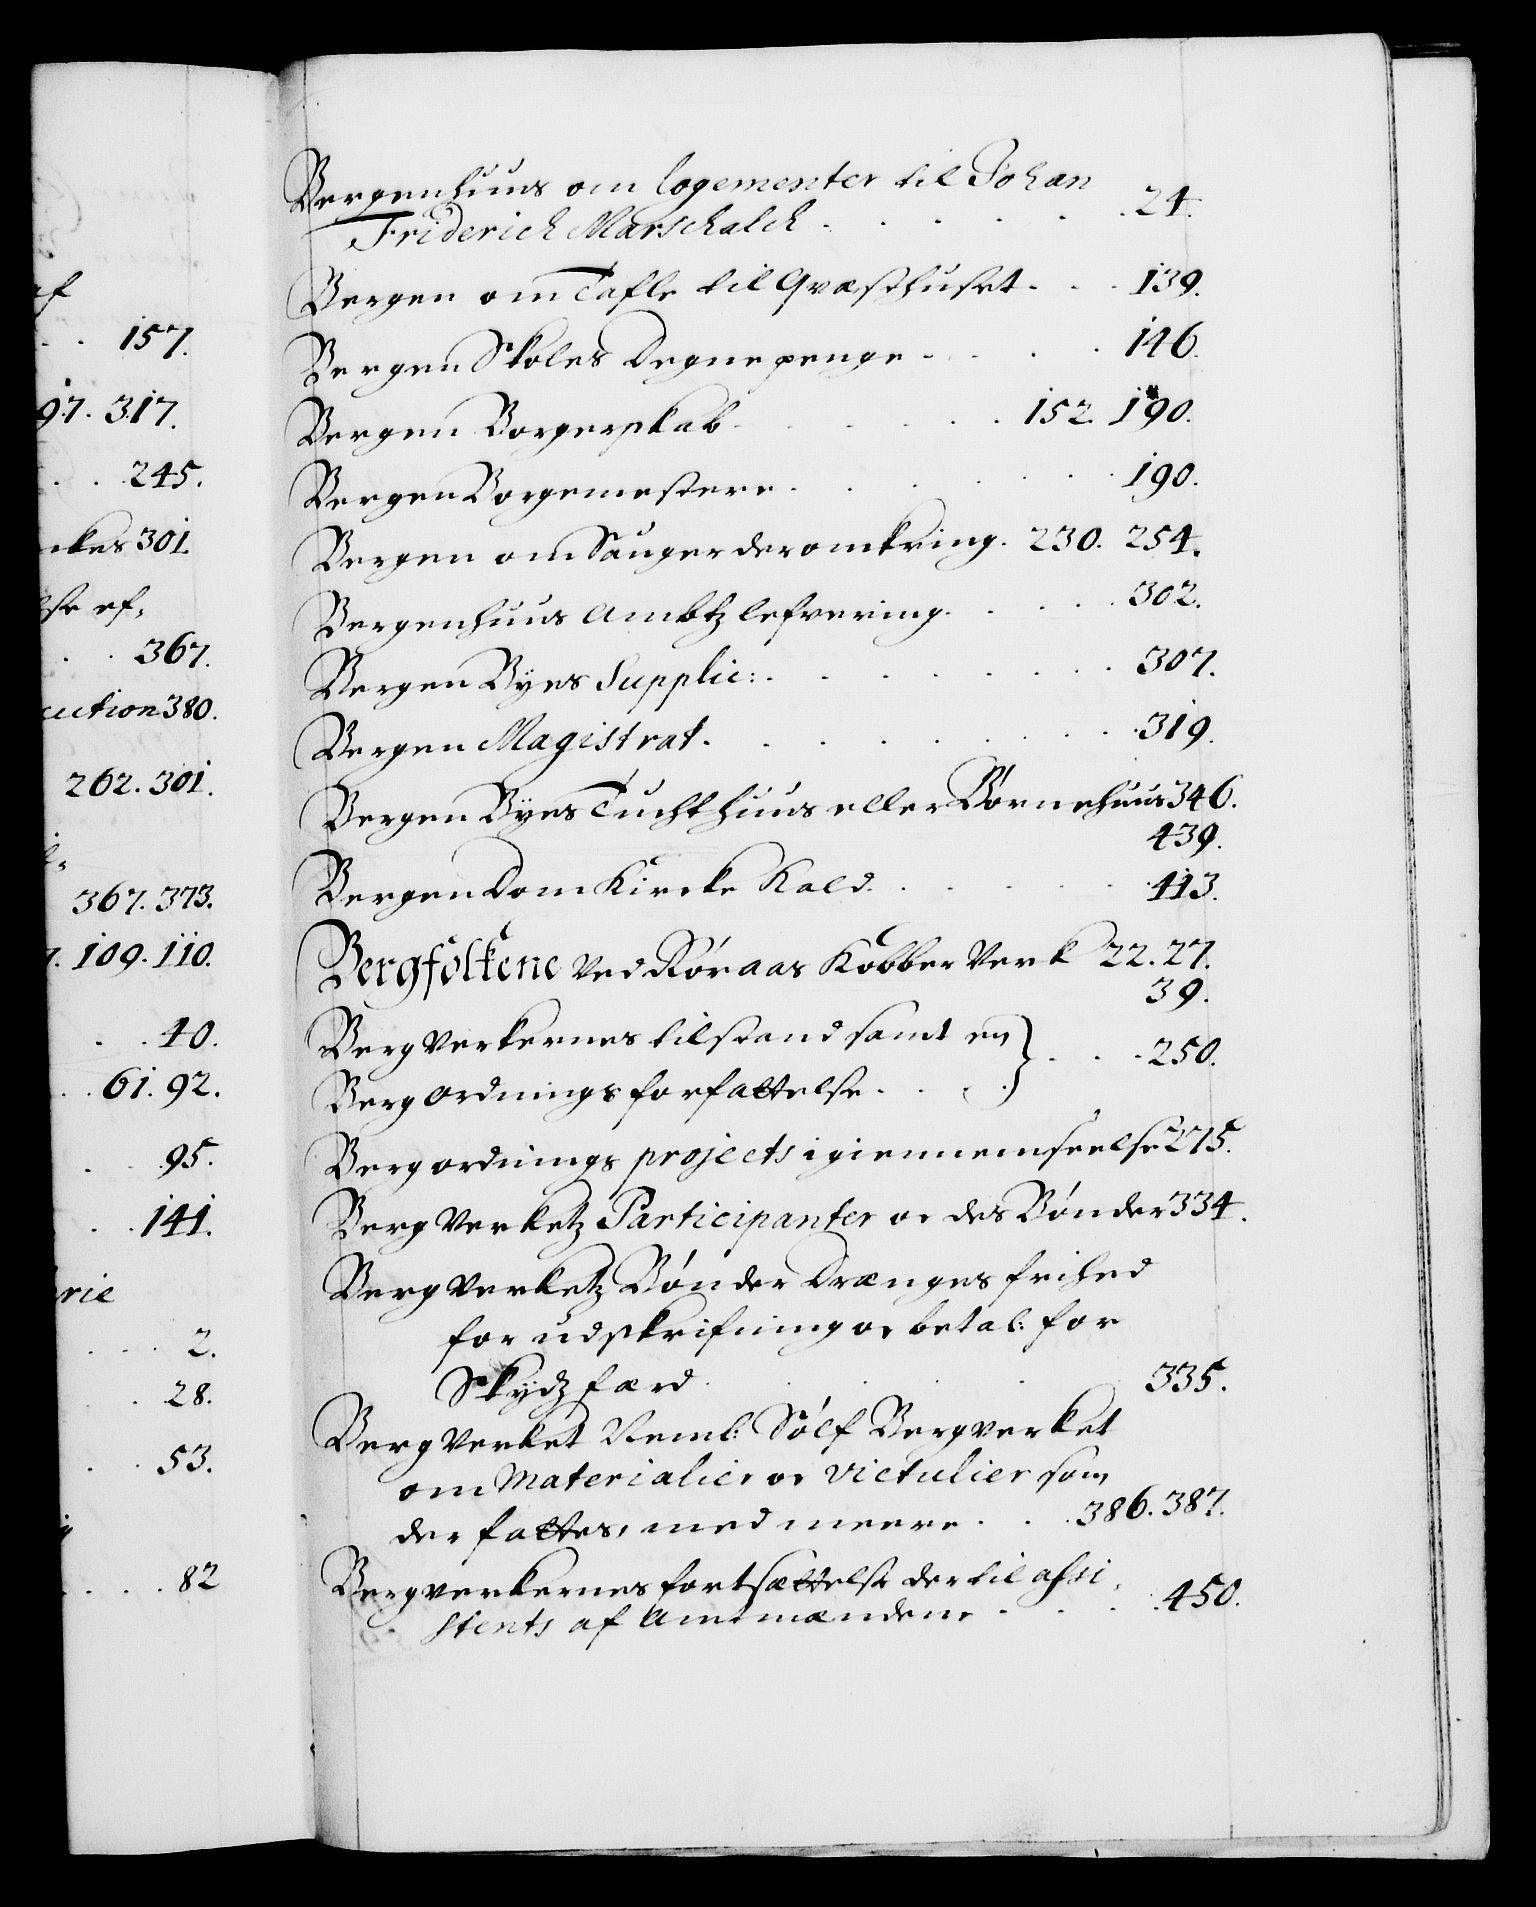 af
. . 157.
97. 317.
. . 245.
nkes 301.
lse ef,
. . 367.
cution 380.
262. 301.
367. 373.
7. 109. 110.
. . 40.
. . 61. 92.
. . 95.
. . 141.
rie
. . . 2.
. . 28.
. . 53.
. . . 82
Bergenhuus om logementer til Johan
Friderich Marschalch . . . . . . 24.
Bergen om Tafle til Qvæsthuset . . . 139.
Bergen Skoles Degnepenge . . . . 146.
Bergen Borgerskab . . . . . 152. 190.
Bergen Borgemestere . . . . . . 190.
Bergen om Sauger deromkring. 230. 254.
Bergenhuus Ambtz lefvering . . . . 302.
Bergen Byes Supplic: . . . . . . 307.
Bergen Magistrat . . . . . . 319.
Bergen Byes Tuchthuus eller Børnehuus 346.
439.
Bergen Dom Kircke Kald . . . . . 413.
Bergfolkene ved Røraas Kobber Verk 22. 27.
39.
Berg Verkernes tilstand samt en } . . . 250.
Berg Ordnings forfattelse . . . }
Berg ordnings projects igiennemseelse 275.
Berg Verketz Participanter oc des Bønder 334.
Berg Verketz Bønder Drænges frihed
for udskrifning oc betal: for
Skydzfærd . . . . 335.
Berg Verket Neml: Sølf Bergverket
om Materialier oc Victualier som
der fattes, med meere . . . 386. 387.
Bergverkernes fortsættelse der til assi,
stents af Amtmændene . . . . 450.